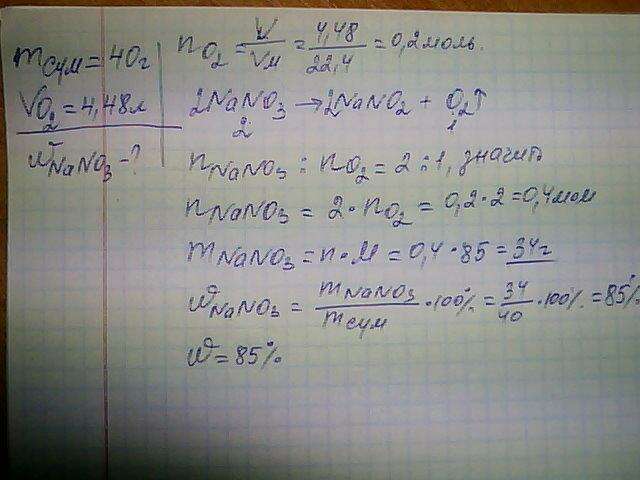 mсум = 40г
VO₂ = 4,48л
ωNaNO₃ - ?
nO₂ = V/Vм = 4,48/22,4 = 0,2 моль.
2NaNO₃ → 2NaNO₂ + O₂↑
2 1
nNaNO₃ : nO₂ = 2 : 1, значить
nNaNO₃ = 2 · nO₂ = 0,2 · 2 = 0,4 мол
mNaNO₃ = n · M = 0,4 · 85 = 34г
ωNaNO₃ = mNaNO₃/mсум · 100% = 34/40 · 100% = 85%
ω = 85%